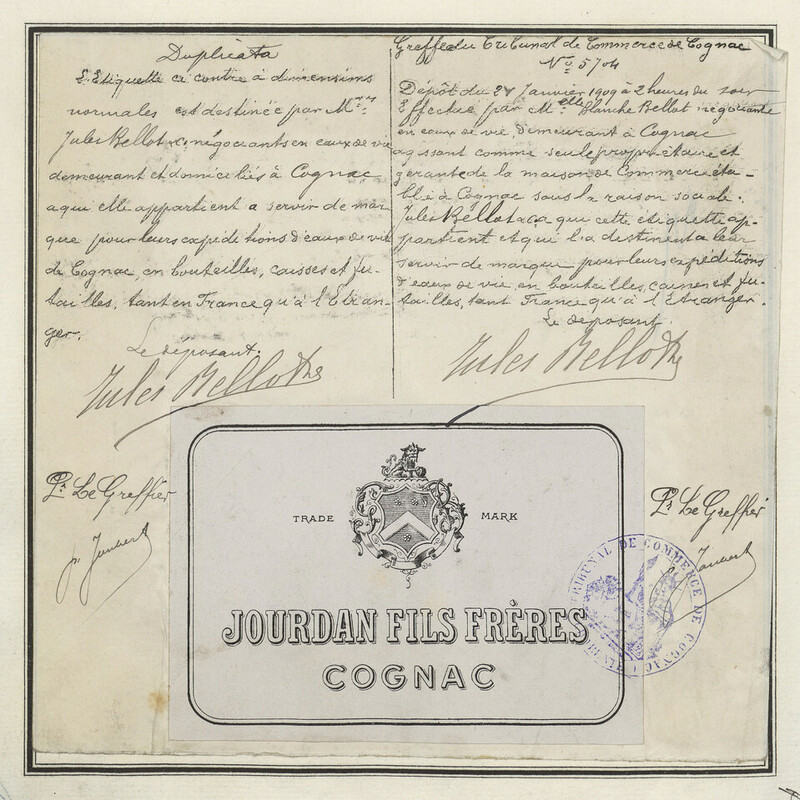 Duplicata
L'Etiquette ci contre à dimensions
normales est destinée par Mrs
Jules Bellot & Co négociants en eaux de vie
demeurant et domiciliés à Cognac
a qui elle appartient a servir de mar
que pour leurs expéditions d'eaux de vie
de Cognac, en bouteilles, caisses et fu-
tailles, tant en France qu'à l'Etran-
ger.
Le déposant.
Jules Bellot & Co
Pr Le Greffier
Greffe du Tribunal de Commerce de Cognac
No 5704
Dépôt du 27 Janvier 1909 à 2 heures du soir
Effectué par Melle Blanche Bellot négociante
en eaux de vie, demeurant à Cognac
agissant comme seule propriétaire et
gérante de la maison de Commerce éta-
blie à Cognac sous la raison sociale.
Jules Bellot & Co a que cette étiquette ap-
partient et qui l'a destine a leur
servir de marque pour leurs expéditions
d'eaux de vie, en bouteilles, caisses et fu-
tailles, tant France qu'à l'Etranger.
Le déposant.
Jules Bellot & Co
Pr Le Greffier
TRADE MARK
JOURDAN FILS FRÈRES
COGNAC
TRIBUNAL DE COMMERCE DE COGNAC